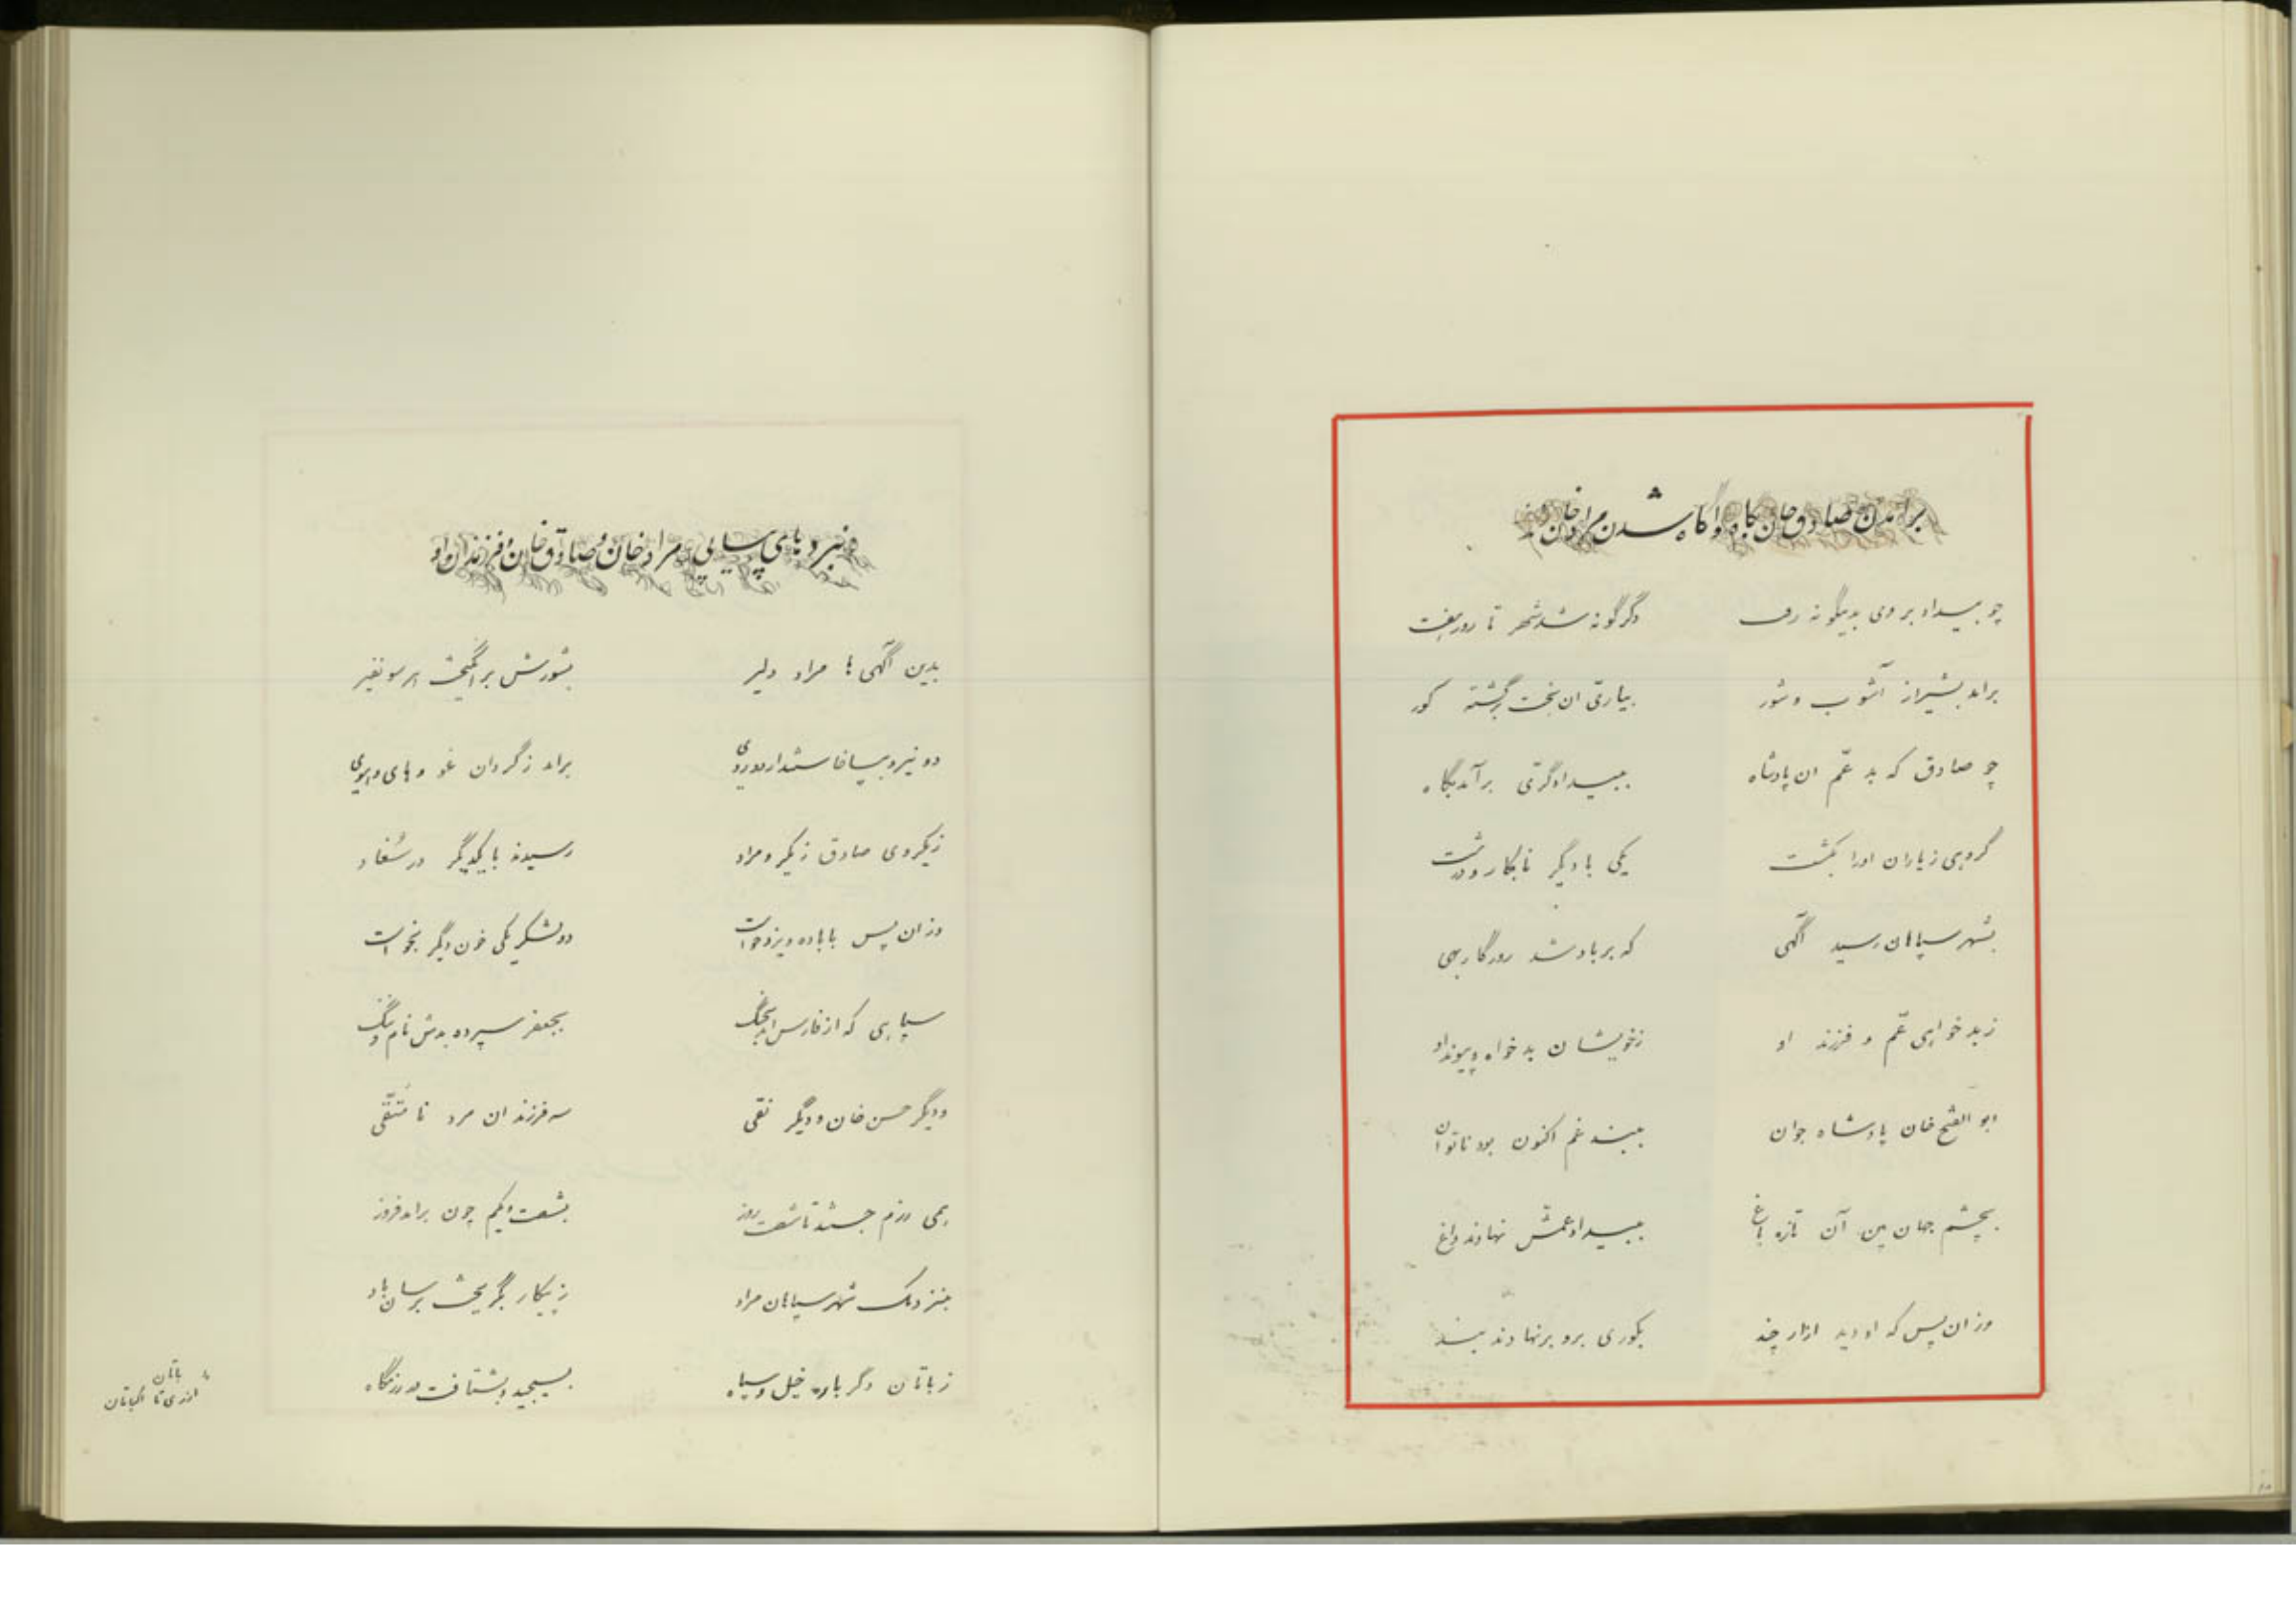 برآمدن صادق خان بگاه و آگاه شدن مراد خان
چو بیداد بر وی بدینگونه رفت    دگرگونه شد شهر تا روز هفت
برآمد بشیراز آشوب و شور    بیاری ان بخت برگشته کور
چو صادق که بد عمّ ان پادشاه    ببیدادگری برآمد بگاه
گروهی زیاران او را بکشت    یکی با دیگر نابکار و درشت
بشهر سپاهان رسید آگهی    که بر باد شد روزگار بهی
ز بدخواهی عمّ و فرزند او    زخویشان بدخواه و پیوند او
ابوالفتح خان پادشاه جوان    ببند غم اکنون بود ناتوان
بچشم جهان بین آن تازه باغ    ببیداد عمّش نهادند داغ
وزان پس که او دید ازار چند    بکوری برو برنهادند بند
نبردهای پیاپی مراد خان و صادق خان و فرزندان او
بدین آگهی ها مراد دلیر    بشورش برانگیخت هر سو نفیر
دو نیرو بپا خاستند از دو روی    برآمد ز گردان غو و های و هوی
زیکروی صادق زیکرو مراد    رسیدند با یکدیگر در سُغاد
وزان پس باباده ویزدخواست    دو لشکر یکی خون دیگر بخواست
سپاهی که از فارس آمد بجنگ    بجعفر سپرده بدش نام و ننگ
و دیگر حسن خان و دیگر نقی    سه فرزند ان مرد نا متّقی
همی رزم جستند تا شصت روز    بشصت و یکم چون برآمد فروز
بنزدیک شهر سپاهان مراد    ز پیکار بگریخت برسان باد
زباتان دگرباره خیل و سپاه    بسیجید و بشتافت در رزمگاه
باتان
از ری تا اکباتان